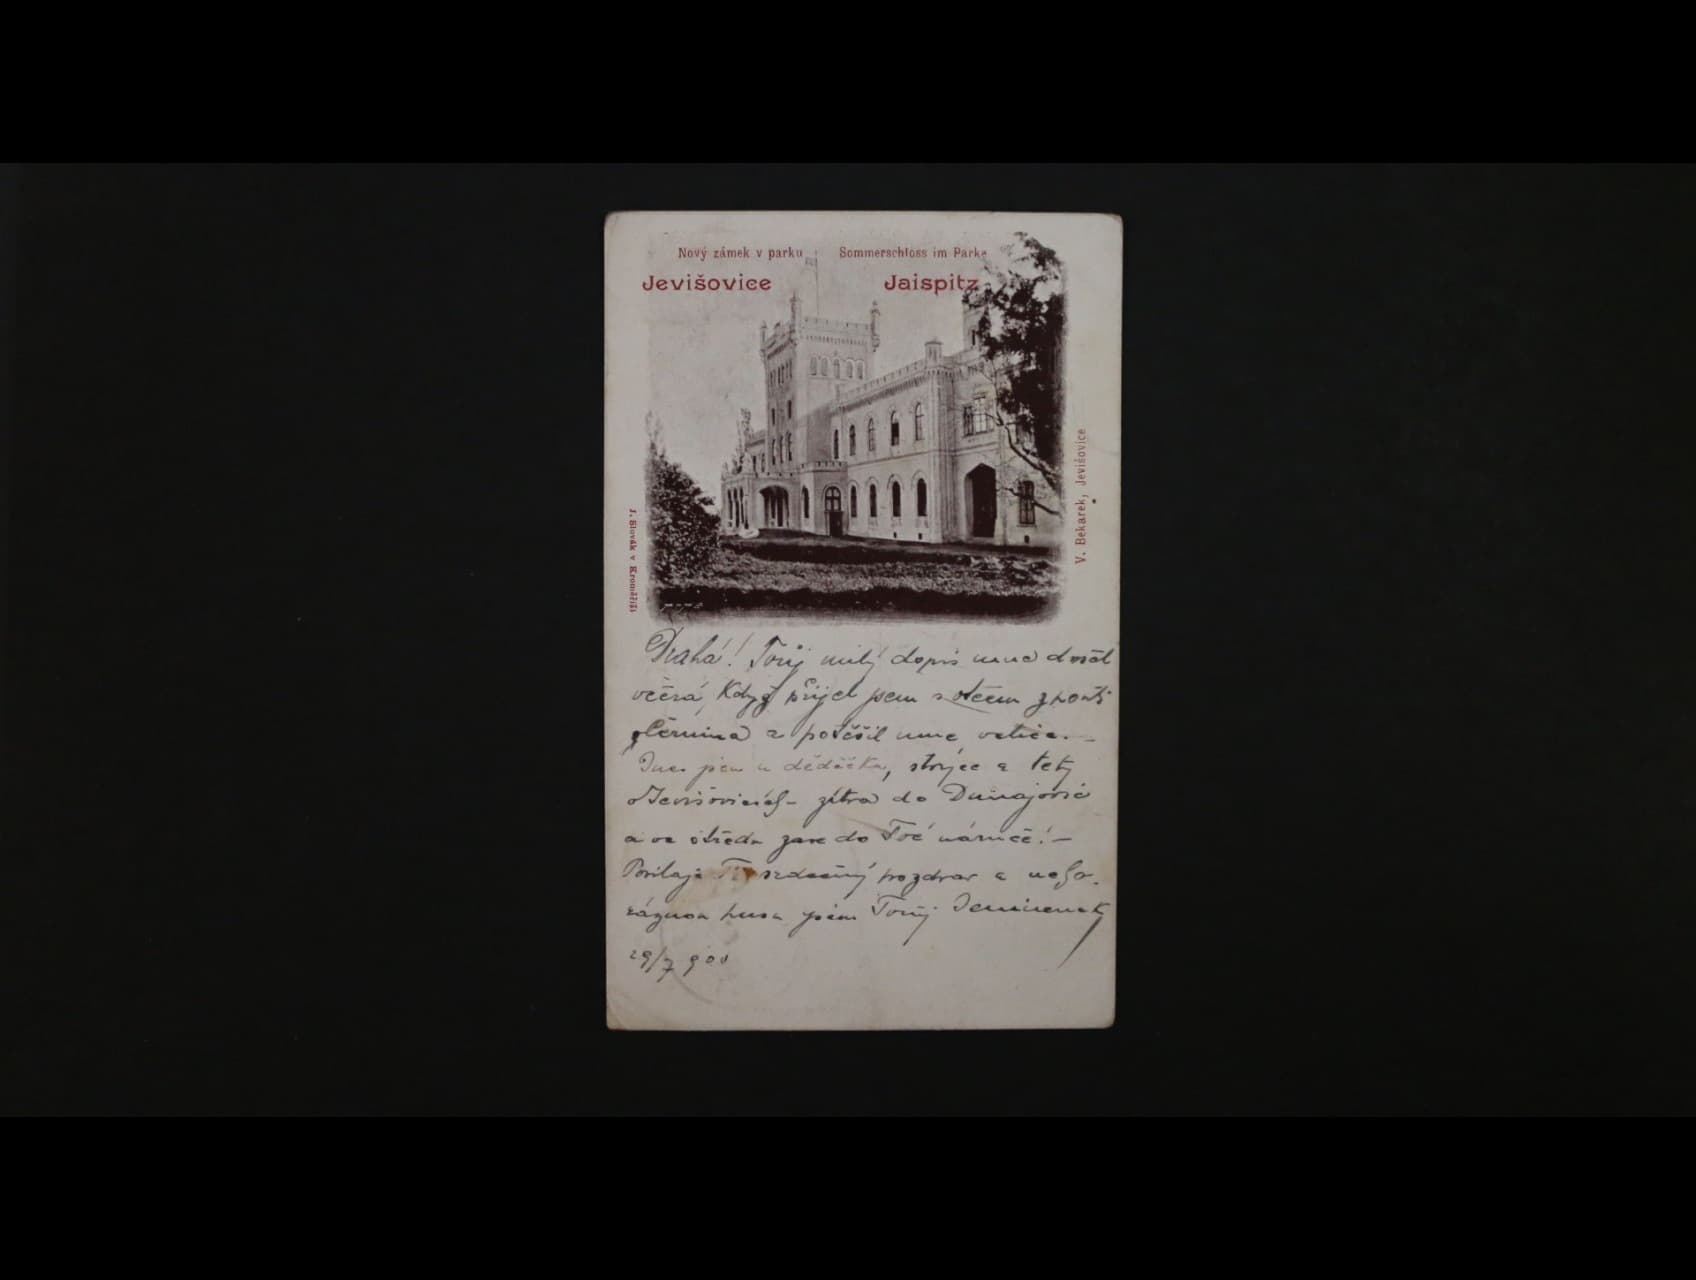 Nový zámek v parku
Jevišovice
Sommerschloss im Parke
Jaispitz
V. Bekárek, Jevišovice
J. Slovák v Kroměříži
Drahá! Tvůj milý dopis mne došel
včera, Když přijel jsem s otcem z
a potěšil mne velice. –
Dnes jsem u dědečka, strýce a tety
v Jevišovicích – zítra do Dunajovic
a ve středu zase do Tvé náruče! –
Posílaje Ti srdečný pozdrav a
jsem Tvůj
29/7 900